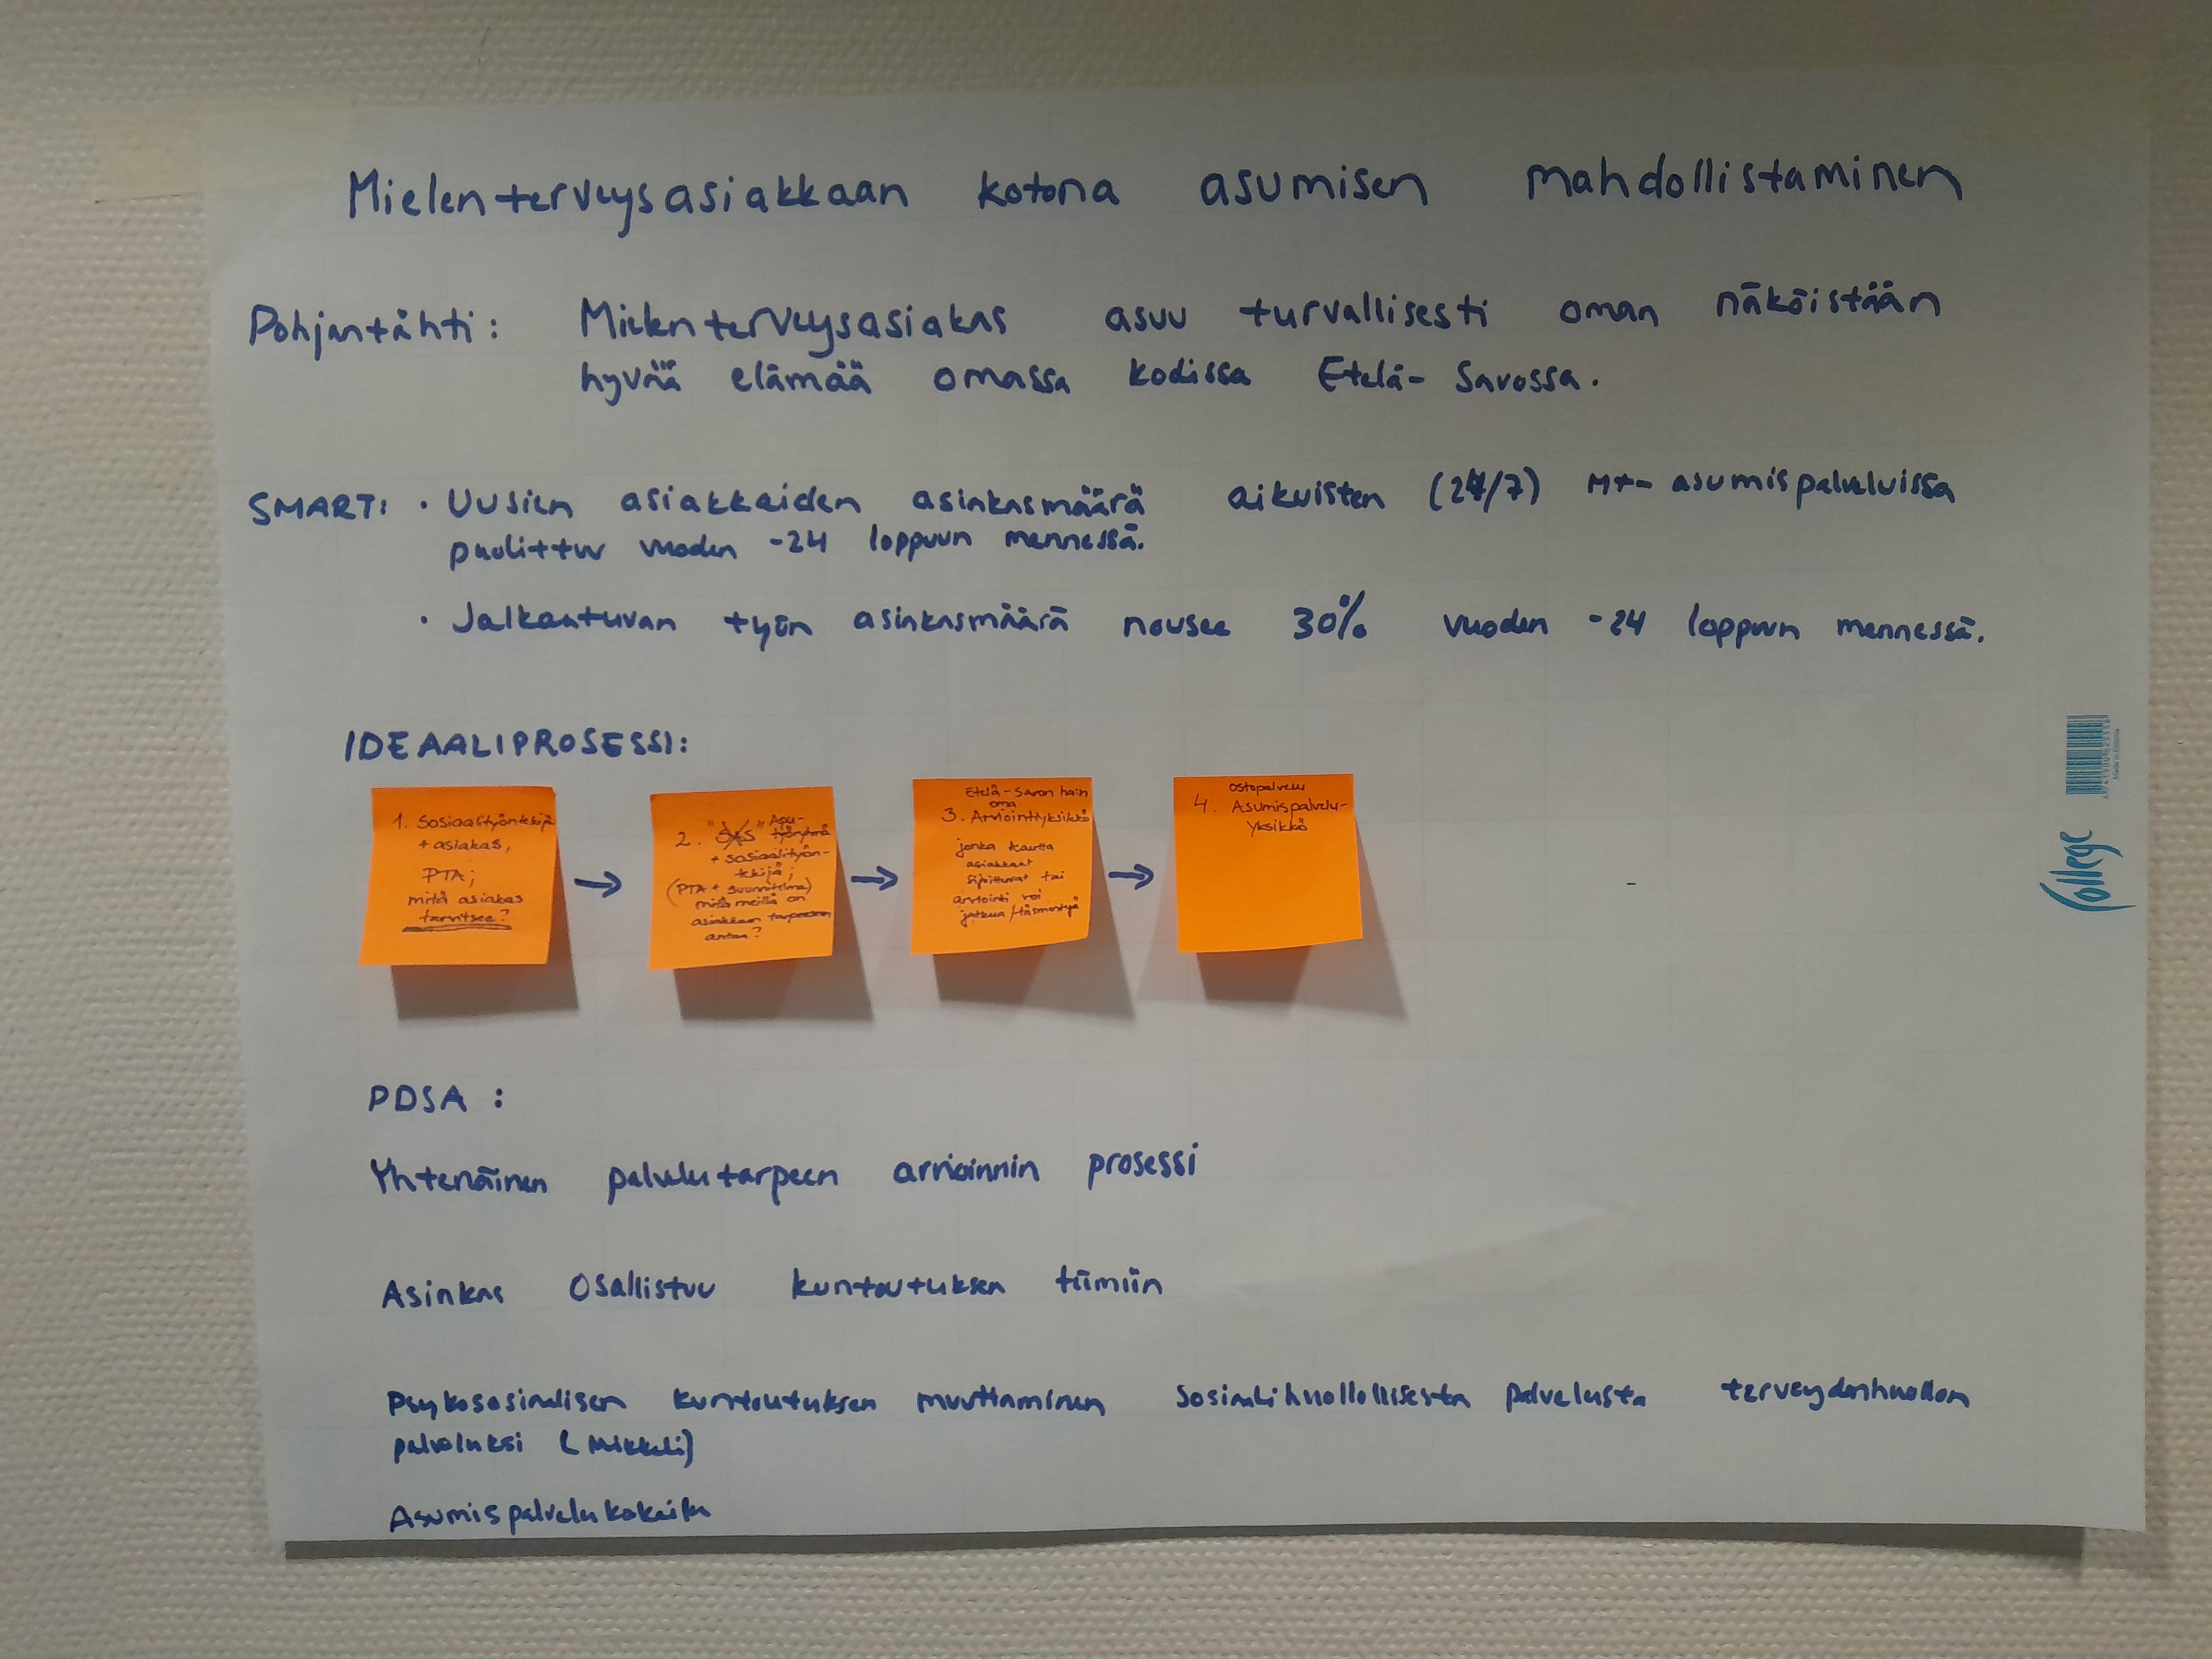 Mielenterveysasiakkaan kotona asumisen mahdollistaminen
Pohjantähti: Mielenterveysasiakas asuu turvallisesti oman näköistään
hyvää elämää omassa kodissa Etelä-Savossa.
SMART: • Uusien asiakkaiden asiakasmäärä aikuisten (24/7) MT-asumispalveluissa
puolittuu vuoden -24 loppuun mennessä.
• Jalkautuvan työn asiakasmäärä nousee 30% vuoden -24 loppuun mennessä.
IDEAALIPROSESSI:
1. Sosiaalityöntekijä
+ asiakas,
PTA;
mitä asiakas
tarvitsee?
2. "SAS" Apu-
työryhmä
+ sosiaalityön-
tekijä;
(PTA + suunnitelma)
mitä meillä on
asiakkaan tarpeeseen
antaa?
Etelä-Savon ha:n
oma
3. Arviointiyksikkö
jonka kautta
asiakkaat
sijoittuvat tai
arviointi voi
jatkua/täsmentyä
Ostopalvelu
4. Asumispalvelu-
yksikkö
PDSA:
Yhtenäinen palvelutarpeen arvioinnin prosessi
Asiakas osallistuu kuntoutuksen tiimiin
Psykososiaalisen kuntoutuksen muuttaminen sosiaalihuollollisesta palvelusta terveydenhuollon
palveluksi (Mikkeli)
Asumispalvelukokeilu
College